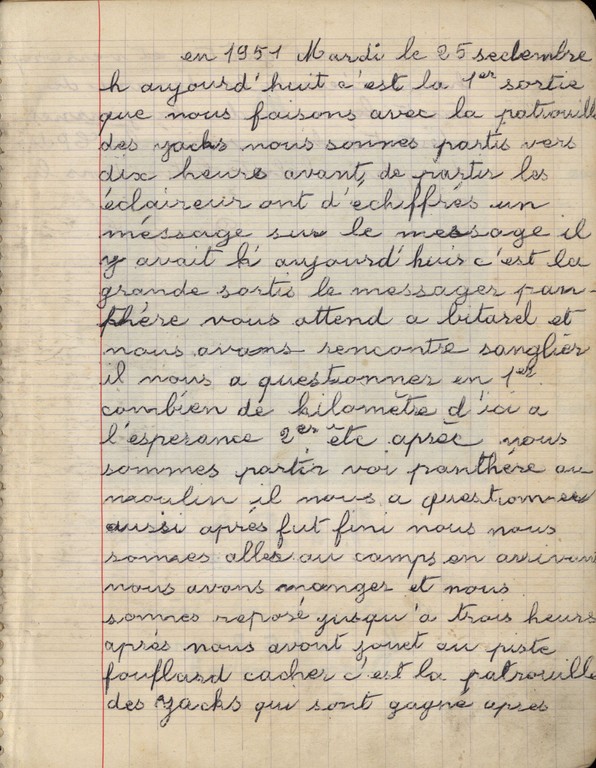 en 1951 Mardi le 25 seclembre
h aujourd'huit c'est la 1er sortie
que nous faisons avec la patrouille
des yacks nous sonnes partis vers
dix heure avant, de partir les
éclaireur ont d'échiffrés un
méssage sur le message il
y avait h' aujourd'huis c'est la
grande sortis le messager pan-
thère vous attend a bitarel et
nous avons rencontre sanglier
il nous a questionner en 1er
combien de kilomètre d'ici a
l'esperance 2er etc aprèc nous
sommes partir voi panthère au
moulin il nous a questionner
aussi après fut fini nous nous
sommes alles au camps en arrivant
nous avons manger et nous
sommes reposé jusqu'a trois heurs
après nous avont jouet au piste
fouflard cacher c'est la patrouille
des yacks qui sont gagné apres